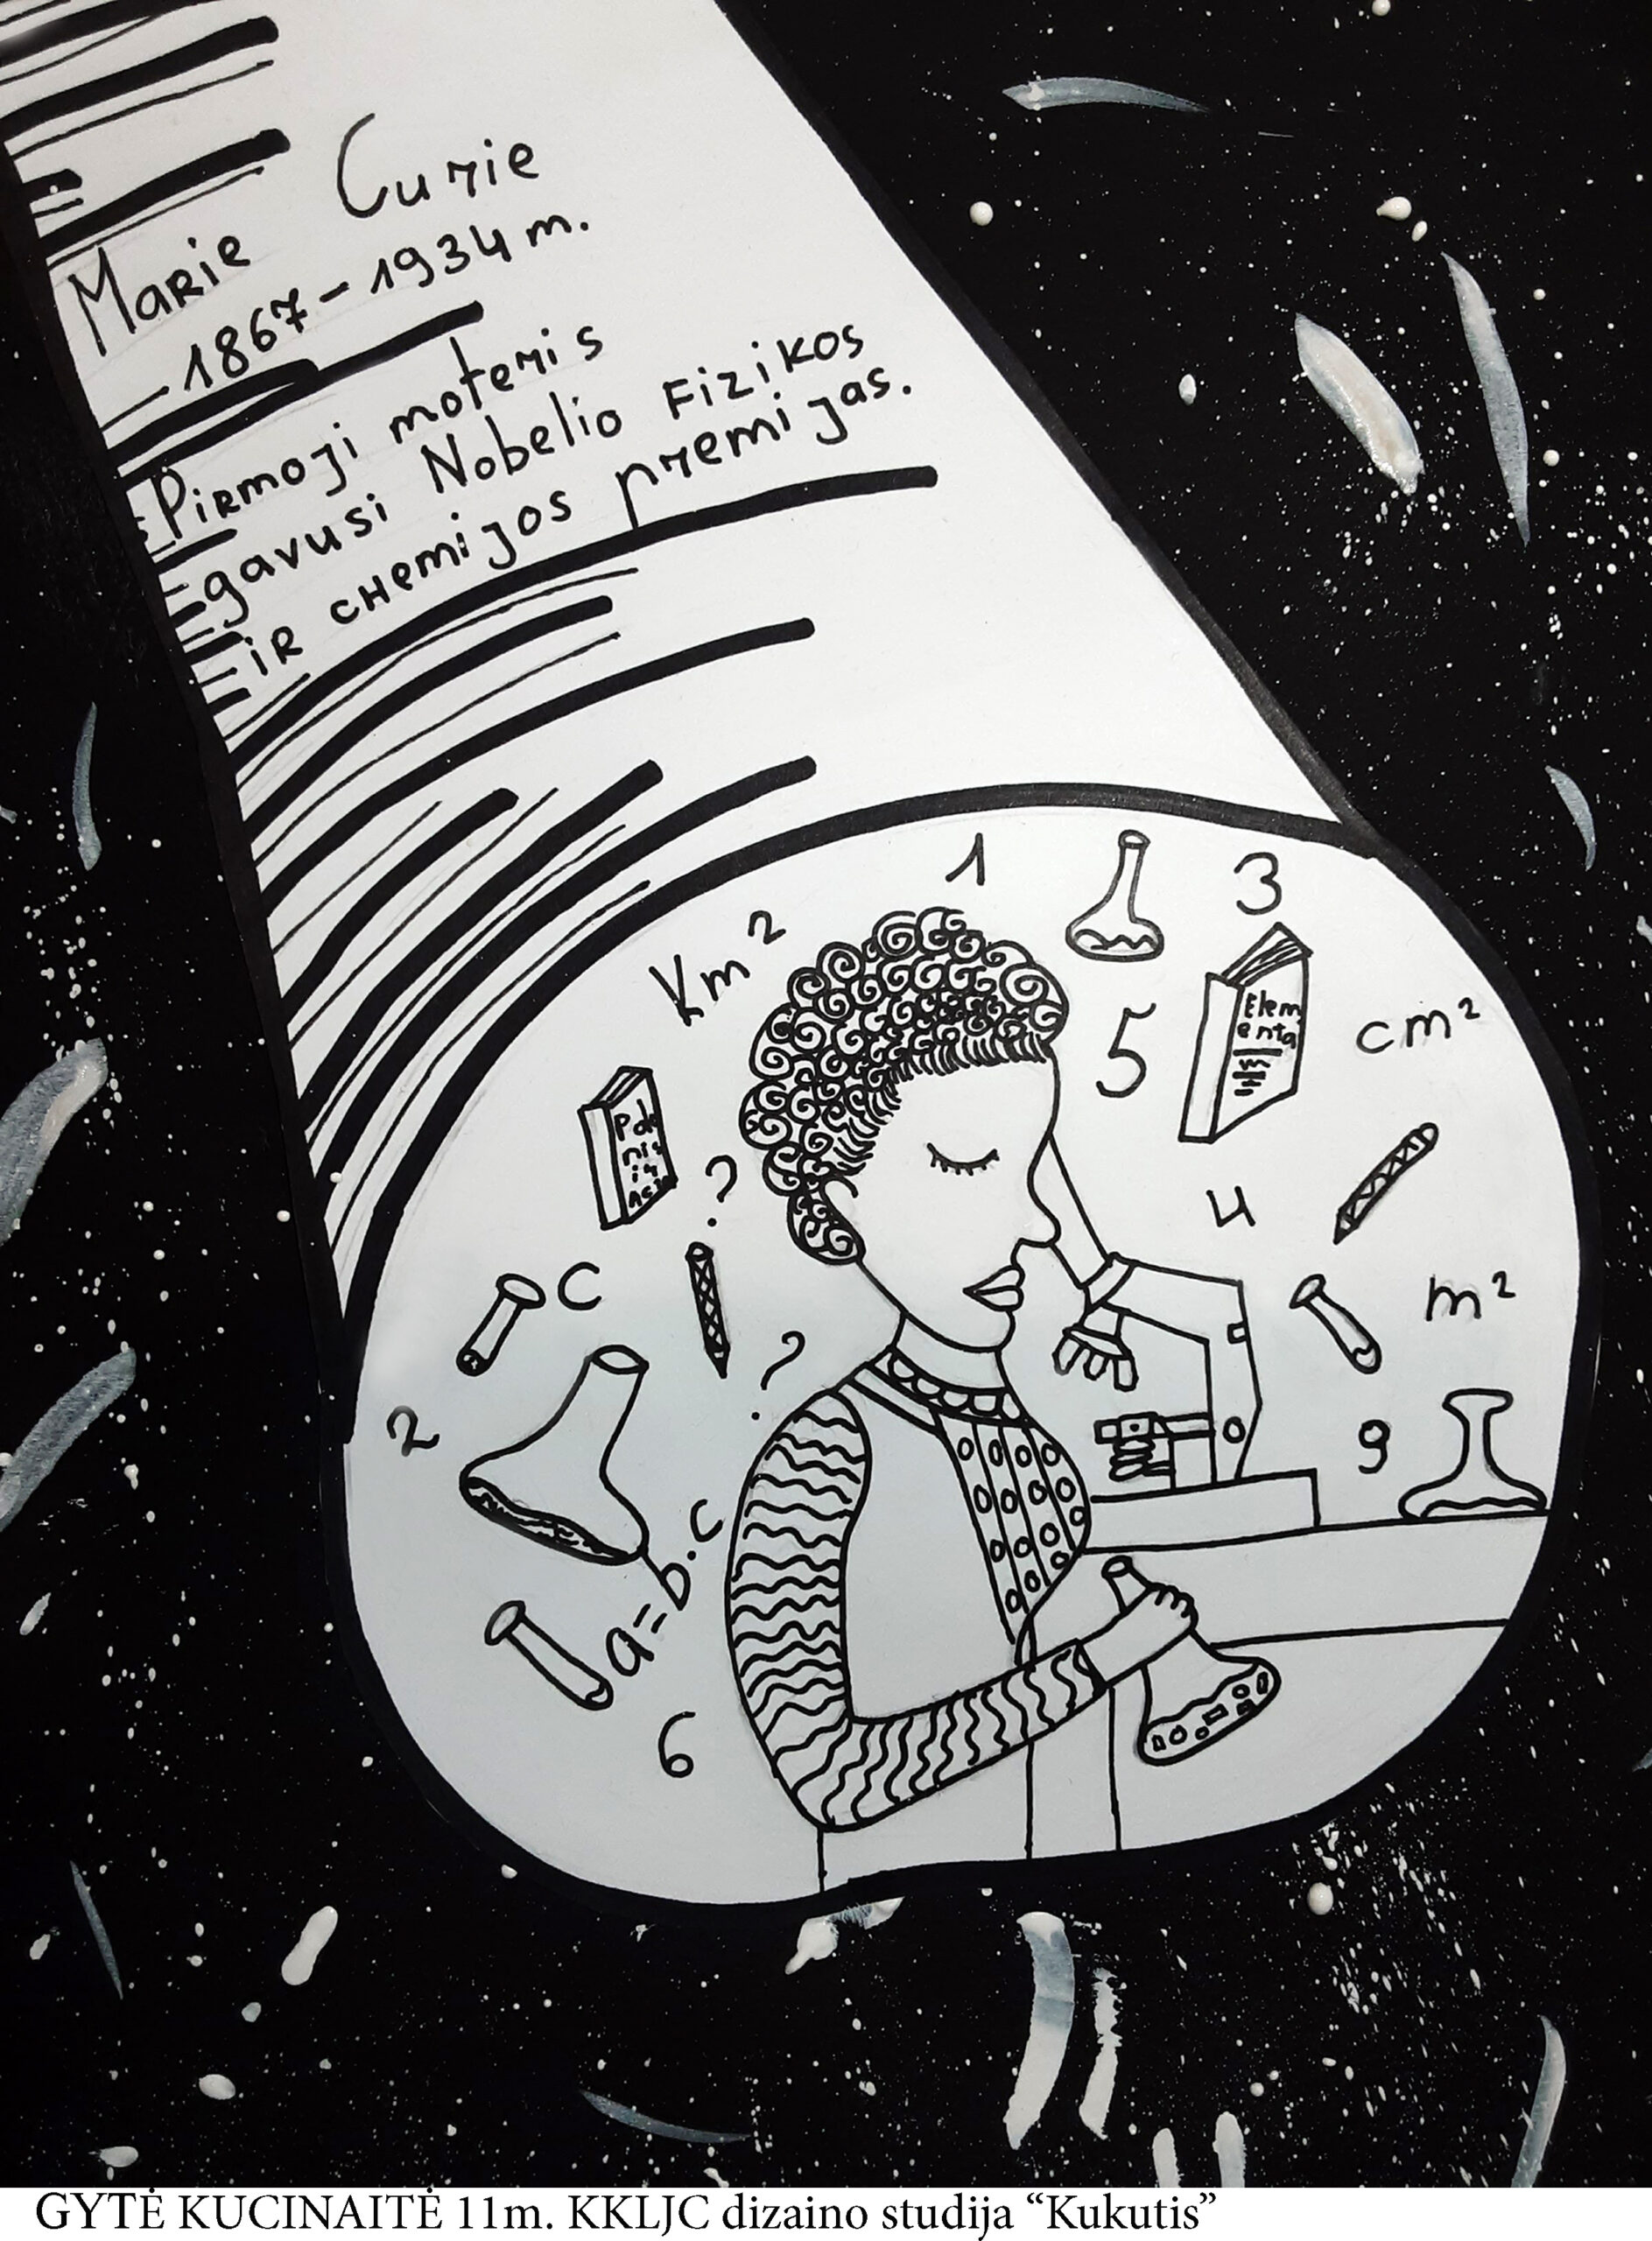 Marie Curie
1867-1934 m.
Pirmoji moteris
gavusi Nobelio Fizikos
ir chemijos premijas.
1
3
Km²
5
Elem
enta
cm²
?
4
C
m²
?
2
9
a=b.c
6
GYTĖ KUCINAITĖ 11m. KKLJC dizaino studija “Kukutis”